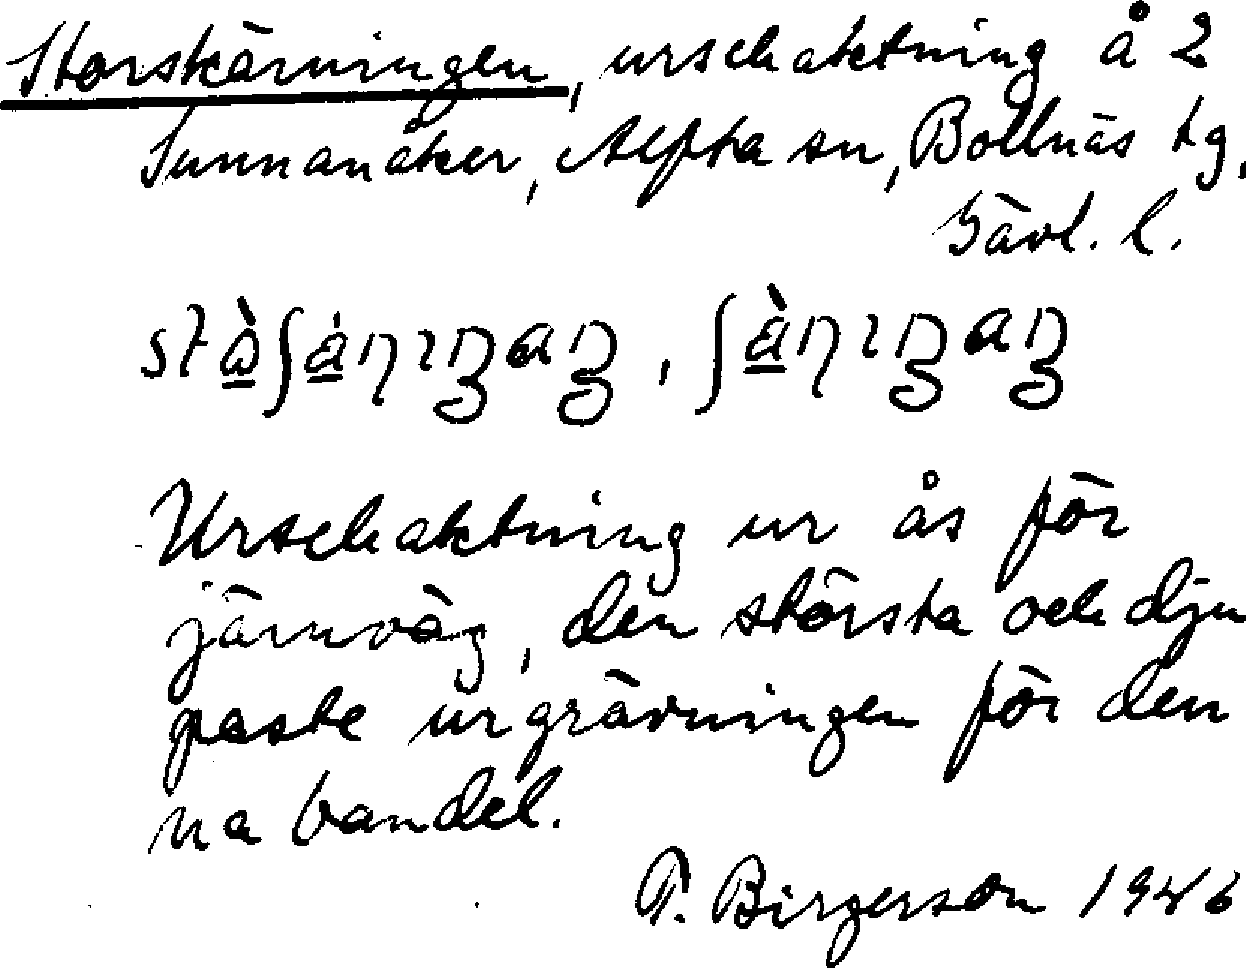 Storskärningen, urschaktning å 2
Sunnanåker, Alfta sn, Bollnäs tg,
Gävl. l.
Urschaktning ur ås för
järnväg, den största och dju
paste urgrävningen för den
na bandel.
T. Birgerson 1946